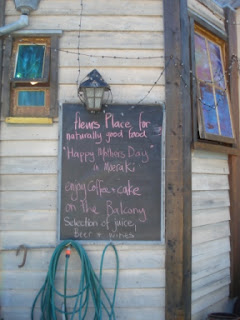 Fleurs Place for
naturally good food
"Happy Mothers Day"
in Moeraki
enjoy Coffee + cake
on the Balcony
Selection of juice,
Beer + wines